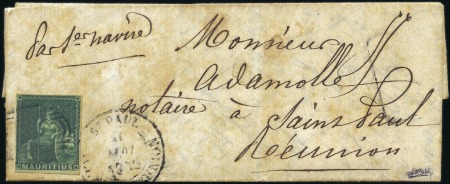 par 1er navire
Monsieur
Adamolle
notaire à Saint Paul
Réunion
MAURITIUS
ST PAUL